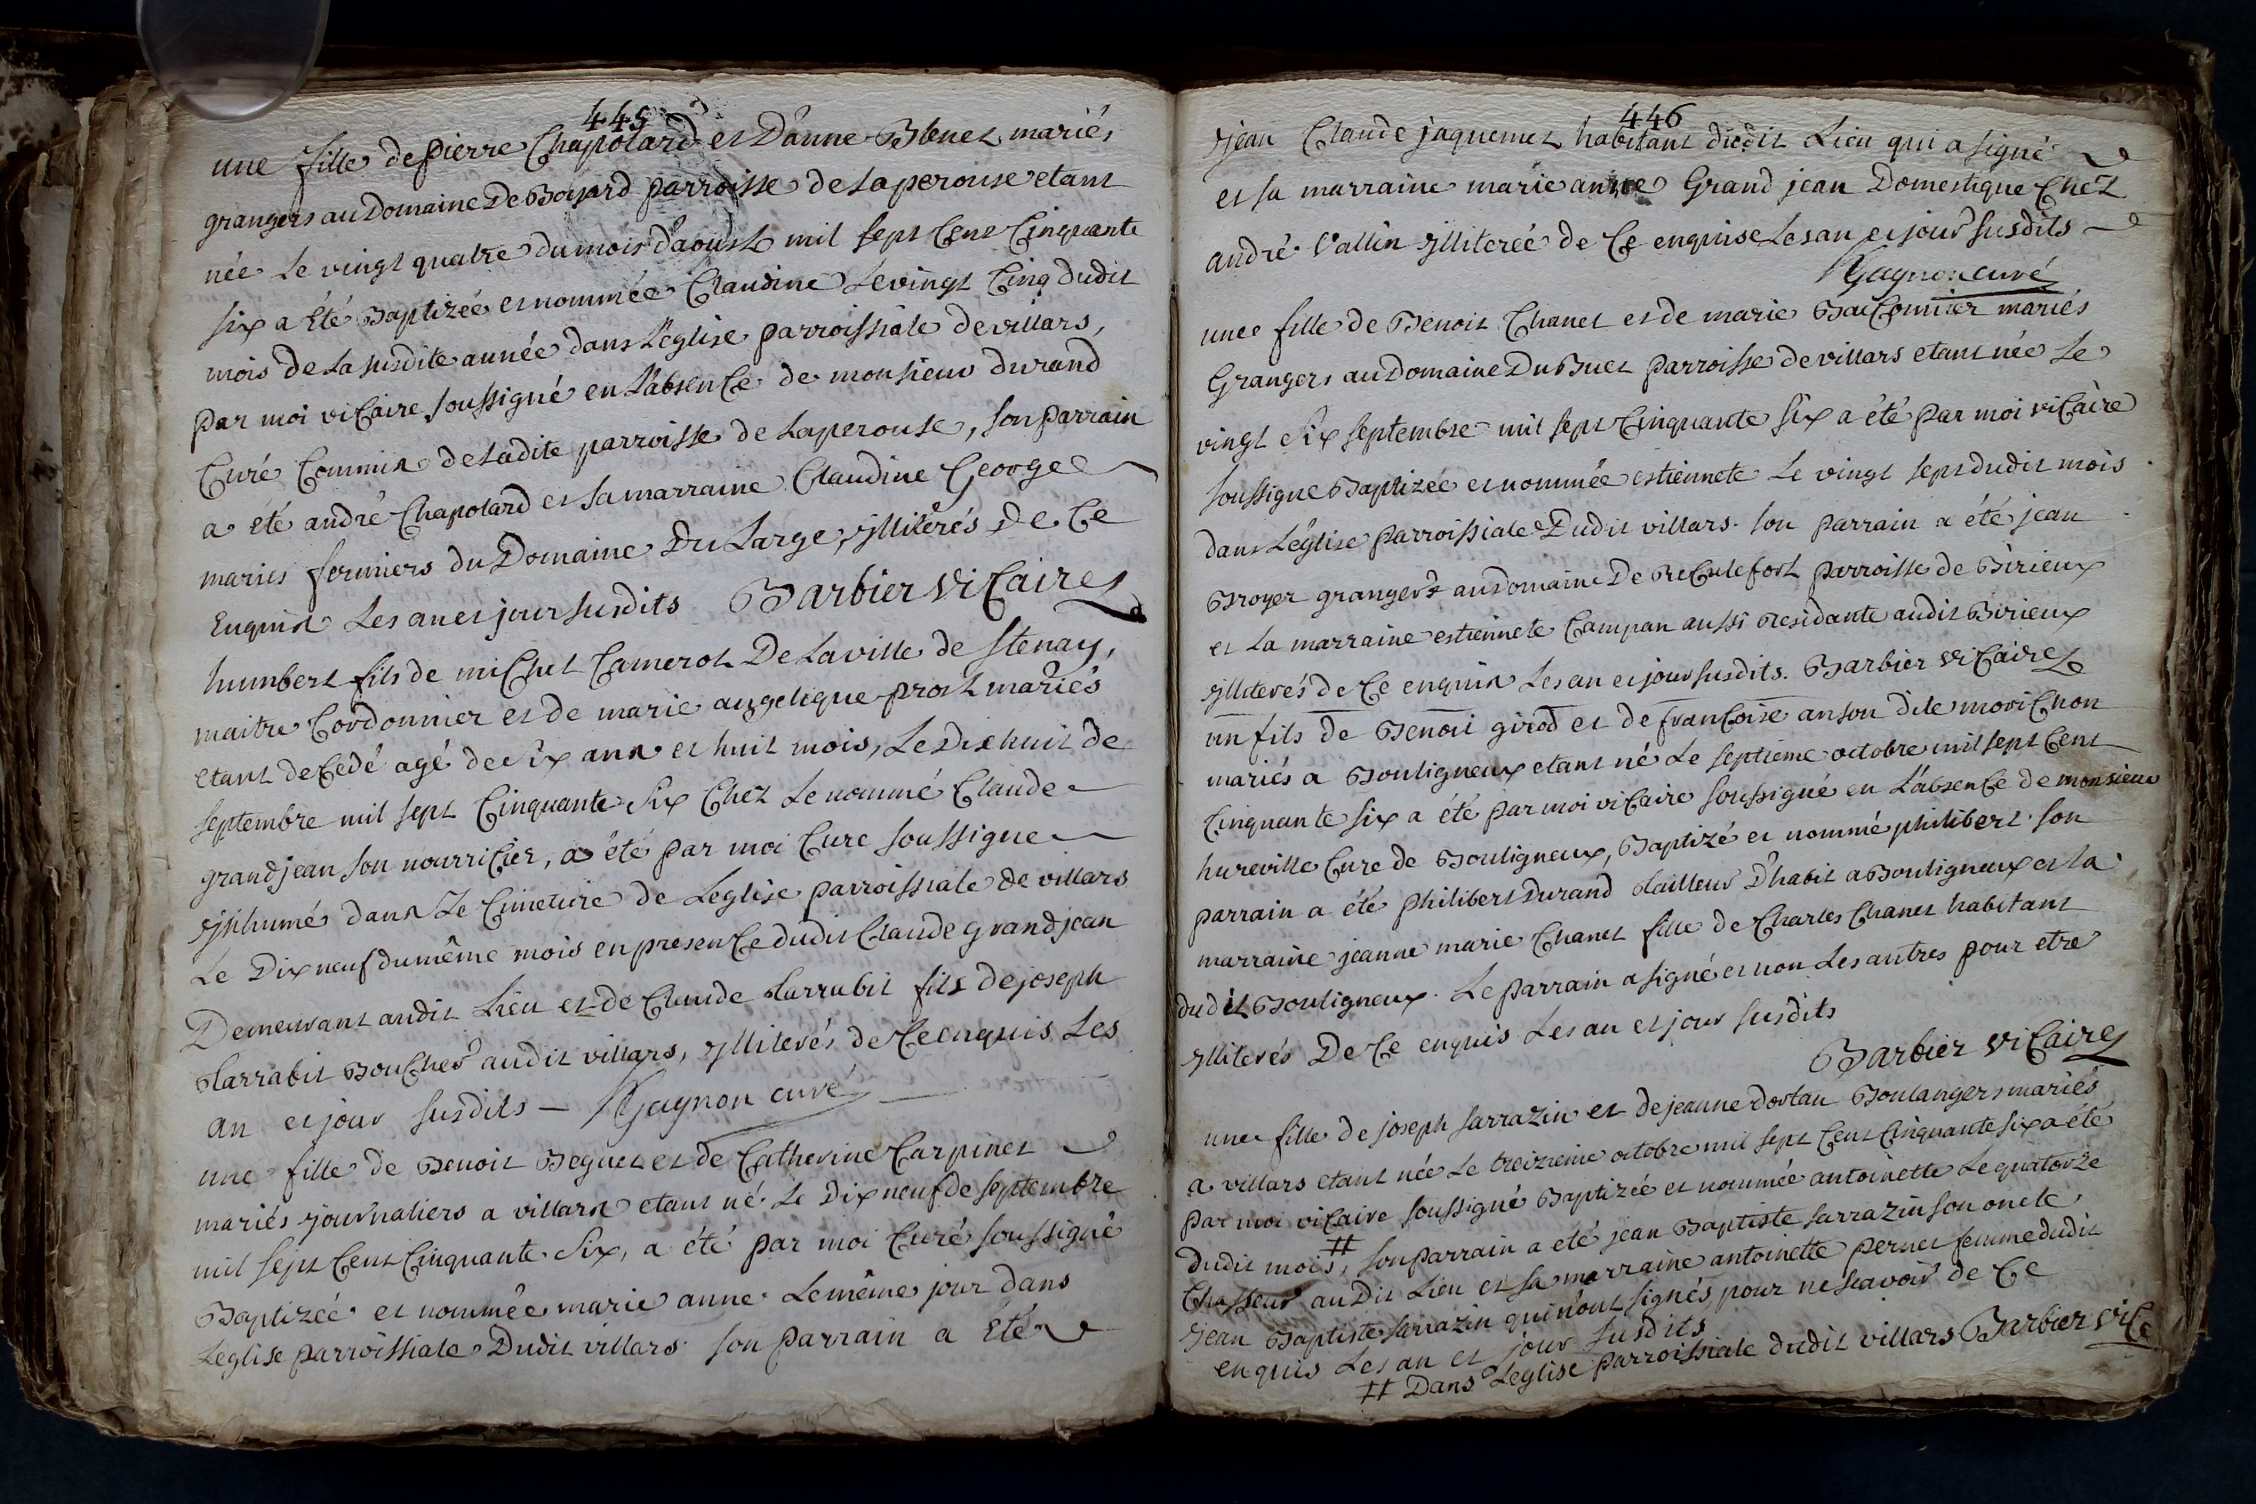 445
une fille de pierre Chapolard et D'anne Blenet mariés
grangers au Domaine De Boyard parroisse de Laperouse etant
née Le vingt quatre du mois d'aoust mil sept Cent Cinquante
six a Eté Baptizée et nommée Claudine Le vingt Cinq dudit
mois de La susdite année dans L'eglise parroissiale de villars,
par moi viCaire soussigné en L'absenCe de monsieur durand
Curé Commis de Ladite parroisse de Laperouse, son parrain
a eté andré Chapolard et sa marraine Claudine George
mariés fermiers du Domaine Du Large, yllitérés De Ce
Enquis Les an et jour susdits Barbier ViCaire
humbert fils de miChel Camerot De La ville de Stenay,
maitre Cordonnier et de marie angelique prost mariés
etant deCedé agé de six ans et huit mois, Le Dixhuit de
septembre mil sept Cinquante six Chez Le nommé Claude
grandjean son nourriCier, a été par moi Curé soussigné
ynhumé dans Le Cimetiere de L'eglise parroissiale de villars
Le Dix neuf du même mois en presenCe dudit Claude grandjean
Demeurant audit Lieu et de Claude Carrabit fils de joseph
Carrabit BouCher audit villars, yllitérés de Ce enquis Les
an et jour susdits — Gagnon curé
une fille de Benoit Beguet et de Catherine Carpinet
mariés journaliers a villars etant né Le Dix neuf de septembre
mil sept Cent Cinquante six, a été par moi Curé soussigné
Baptizée et nommée marie anne Le même jour dans
L'eglise parroissiale Dudit villars son parrain a Eté
446
jean Claude jaquemet habitant dudit Lieu qui a signé
et sa marraine marie anne Grand jean Domestique Chez
andré Vallin ylliterée de Ce enquise Les an et jour susdits
Gagnon curé
une fille de Benoit Chanet et de marie BaCConnier mariés
Grangers au Domaine Du Buet parroisse de villars etant née Le
vingt six septembre mil sept Cinquante six a été par moi viCaire
soussigné Baptizée et nommée estiennete Le vingt sept dudit mois
dans L'église parroissiale Dudit villars. son parrain a été jean
Broyer granger au domaine De ReCulefort parroisse de Birieux
et la marraine estiennete Campan aussi residante audit Birieux
ylliterés de Ce enquis Les an et jour susdits. Barbier ViCaire
un fils de Benoit girod et de franCoise anson dite moriChon
mariés a Bouligneux etant né Le septieme octobre mil sept Cent
Cinquante six a été par moi viCaire soussigné en L'absenCe de monsieur
hureville Curé de Bouligneux, Baptizé et nommé philibert. son
parrain a été philibert Durand tailleur D'habit a Bouligneux et la
marraine jeanne marie Chanet fille de Charles Chanet habitant
dudit Bouligneux. Le parrain a signé et non Les autres pour etre
yllitérés De Ce enquis Les an et jour susdits
Barbier ViCaire
une fille de joseph sarrazin et de jeanne dortan Boulangers mariés
a villars etant née Le treizieme octobre mil sept Cent Cinquante six a été
par moi viCaire soussigné Baptizée et nommée antoinette Le quatorze
dudit mois #, son parrain a eté jean Baptiste sarrazin son oncle
Chasseur audit Lieu et sa marraine antoinette pernet femme dudit
jean Baptiste sarrazin qui n'ont signés pour ne sçavoir de Ce
enquis Les an et jour susdits
# Dans L'eglise parroissiale dudit villars Barbier viCe